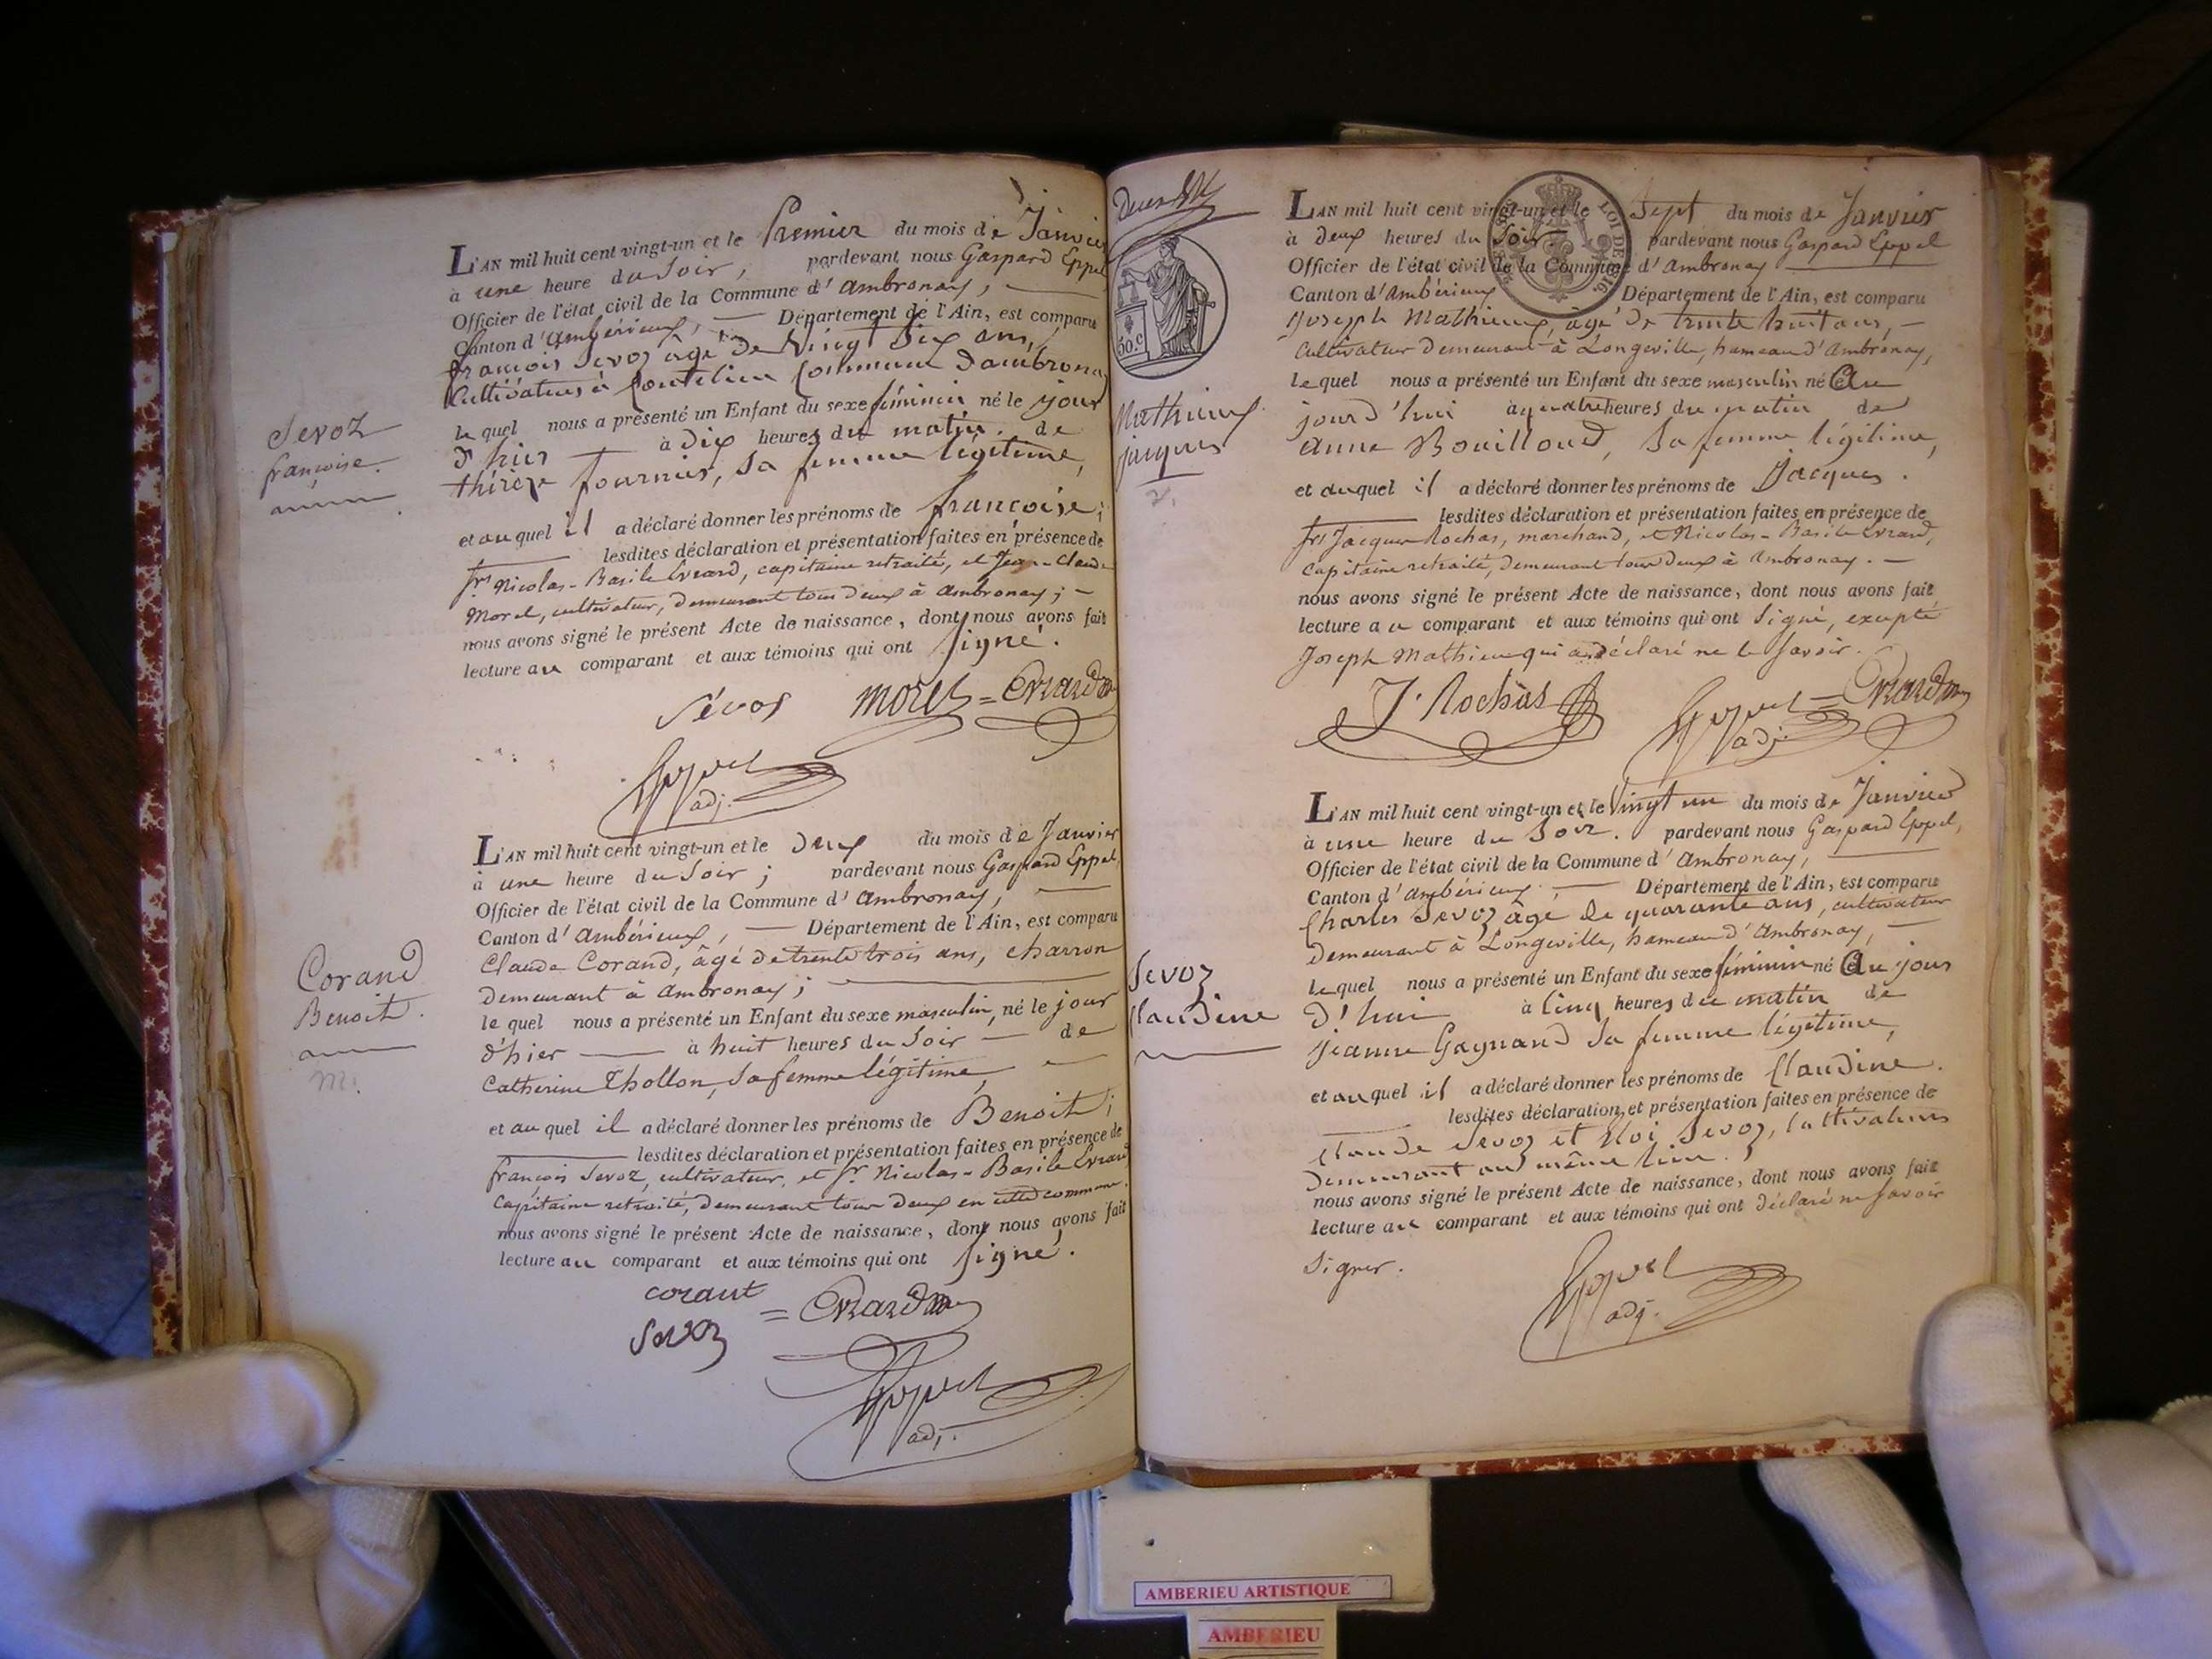 Sevoz
françoise.
L'AN mil huit cent vingt-un et le Premier du mois de Janvier
à une heure du Soir, pardevant nous Gaspard Eppel
Officier de l'état civil de la Commune d'Ambronay,
Canton d'Ambérieux, Département de l'Ain, est comparu
françois Sevoz âgé de Vingt Six ans,
Cultivateur à Commune d'ambronay
le quel nous a présenté un Enfant du sexe féminin né le jour
d'hier à dix heures du matin de
thérèze fournier, sa femme légitime,
et au quel il a déclaré donner les prénoms de françoise;
lesdites déclaration et présentation faites en présence de
frs Nicolas-Basile Evrard, capitaine retraité, et Jean-Claude
Morel, cultivateur, demeurant tous deux à Ambronay; -
nous avons signé le présent Acte de naissance, dont nous avons fait
lecture au comparant et aux témoins qui ont signé.
Sévos morel = Evrard
Eppel
adj.
Corand
Benoit.
m.
L'AN mil huit cent vingt-un et le deux du mois de Janvier
à une heure du Soir; pardevant nous Gaspard Eppel,
Officier de l'état civil de la Commune d'Ambronay,
Canton d'Ambérieux, Département de l'Ain, est comparu
Claude Corand, âgé de trente trois ans, charron
demeurant à Ambronay;
le quel nous a présenté un Enfant du sexe masculin, né le jour
d'hier à huit heures du Soir de
Catherine Thollon, sa femme légitime,
et au quel il a déclaré donner les prénoms de Benoit;
lesdites déclaration et présentation faites en présence de
françois Sevoz, cultivateur, et Sr. Nicolas-Basile Evrard
Capitaine retraité, demeurant tous deux en cette commune,
nous avons signé le présent Acte de naissance, dont nous avons fait
lecture au comparant et aux témoins qui ont signé.
corant = Evrard
Sevoz
Eppel
adj.
60.c
LOI DE 1816
Mathieux
jacques
L'AN mil huit cent vingt-un et le Sept du mois de Janvier
à deux heures du Soir. pardevant nous Gaspard Eppel
Officier de l'état civil de la Commune d'Ambronay
Canton d'Ambérieux Département de l'Ain, est comparu
Joseph Mathieux, âgé de trente huit ans, -
Cultivateur demeurant à Longeville, hameau d'Ambronay,
le quel nous a présenté un Enfant du sexe masculin né Au
jourd'hui à quatre heures du matin de
anne Bouilloud, sa femme légitime,
et auquel il a déclaré donner les prénoms de Jacques.
lesdites déclaration et présentation faites en présence de
frs Jacques Rochas, marchand, et Nicolas-Basile Evrard,
capitaine retraité, demeurant tous deux à Ambronay. -
nous avons signé le présent Acte de naissance, dont nous avons fait
lecture au comparant et aux témoins qui ont Signé, excepté
Joseph Mathieux qui a déclaré ne le Savoir.
J. Rochas = Evrard
Eppel
adj.
Sevoz
Claudine
L'AN mil huit cent vingt-un et le Vingt un du mois de Janvier
à une heure du Soir. pardevant nous Gaspard Eppel,
Officier de l'état civil de la Commune d'Ambronay,
Canton d'Ambérieux Département de l'Ain, est comparu
Charles Sevoz âgé de quarante ans, cultivateur
demeurant à Longeville, hameau d'Ambronay, -
le quel nous a présenté un Enfant du sexe féminin né Au jour
d'hui à Cinq heures du matin de
jeanne Gagnand sa femme légitime,
et au quel il a déclaré donner les prénoms de Claudine.
lesdites déclaration et présentation faites en présence de
Claude Sevoz et Sevoz, Cultivateurs
demeurant au même lieu.
nous avons signé le présent Acte de naissance, dont nous avons fait
lecture au comparant et aux témoins qui ont déclaré ne Savoir
Signer.
Eppel
adj.
AMBERIEU ARTISTIQUE
AMBERIEU